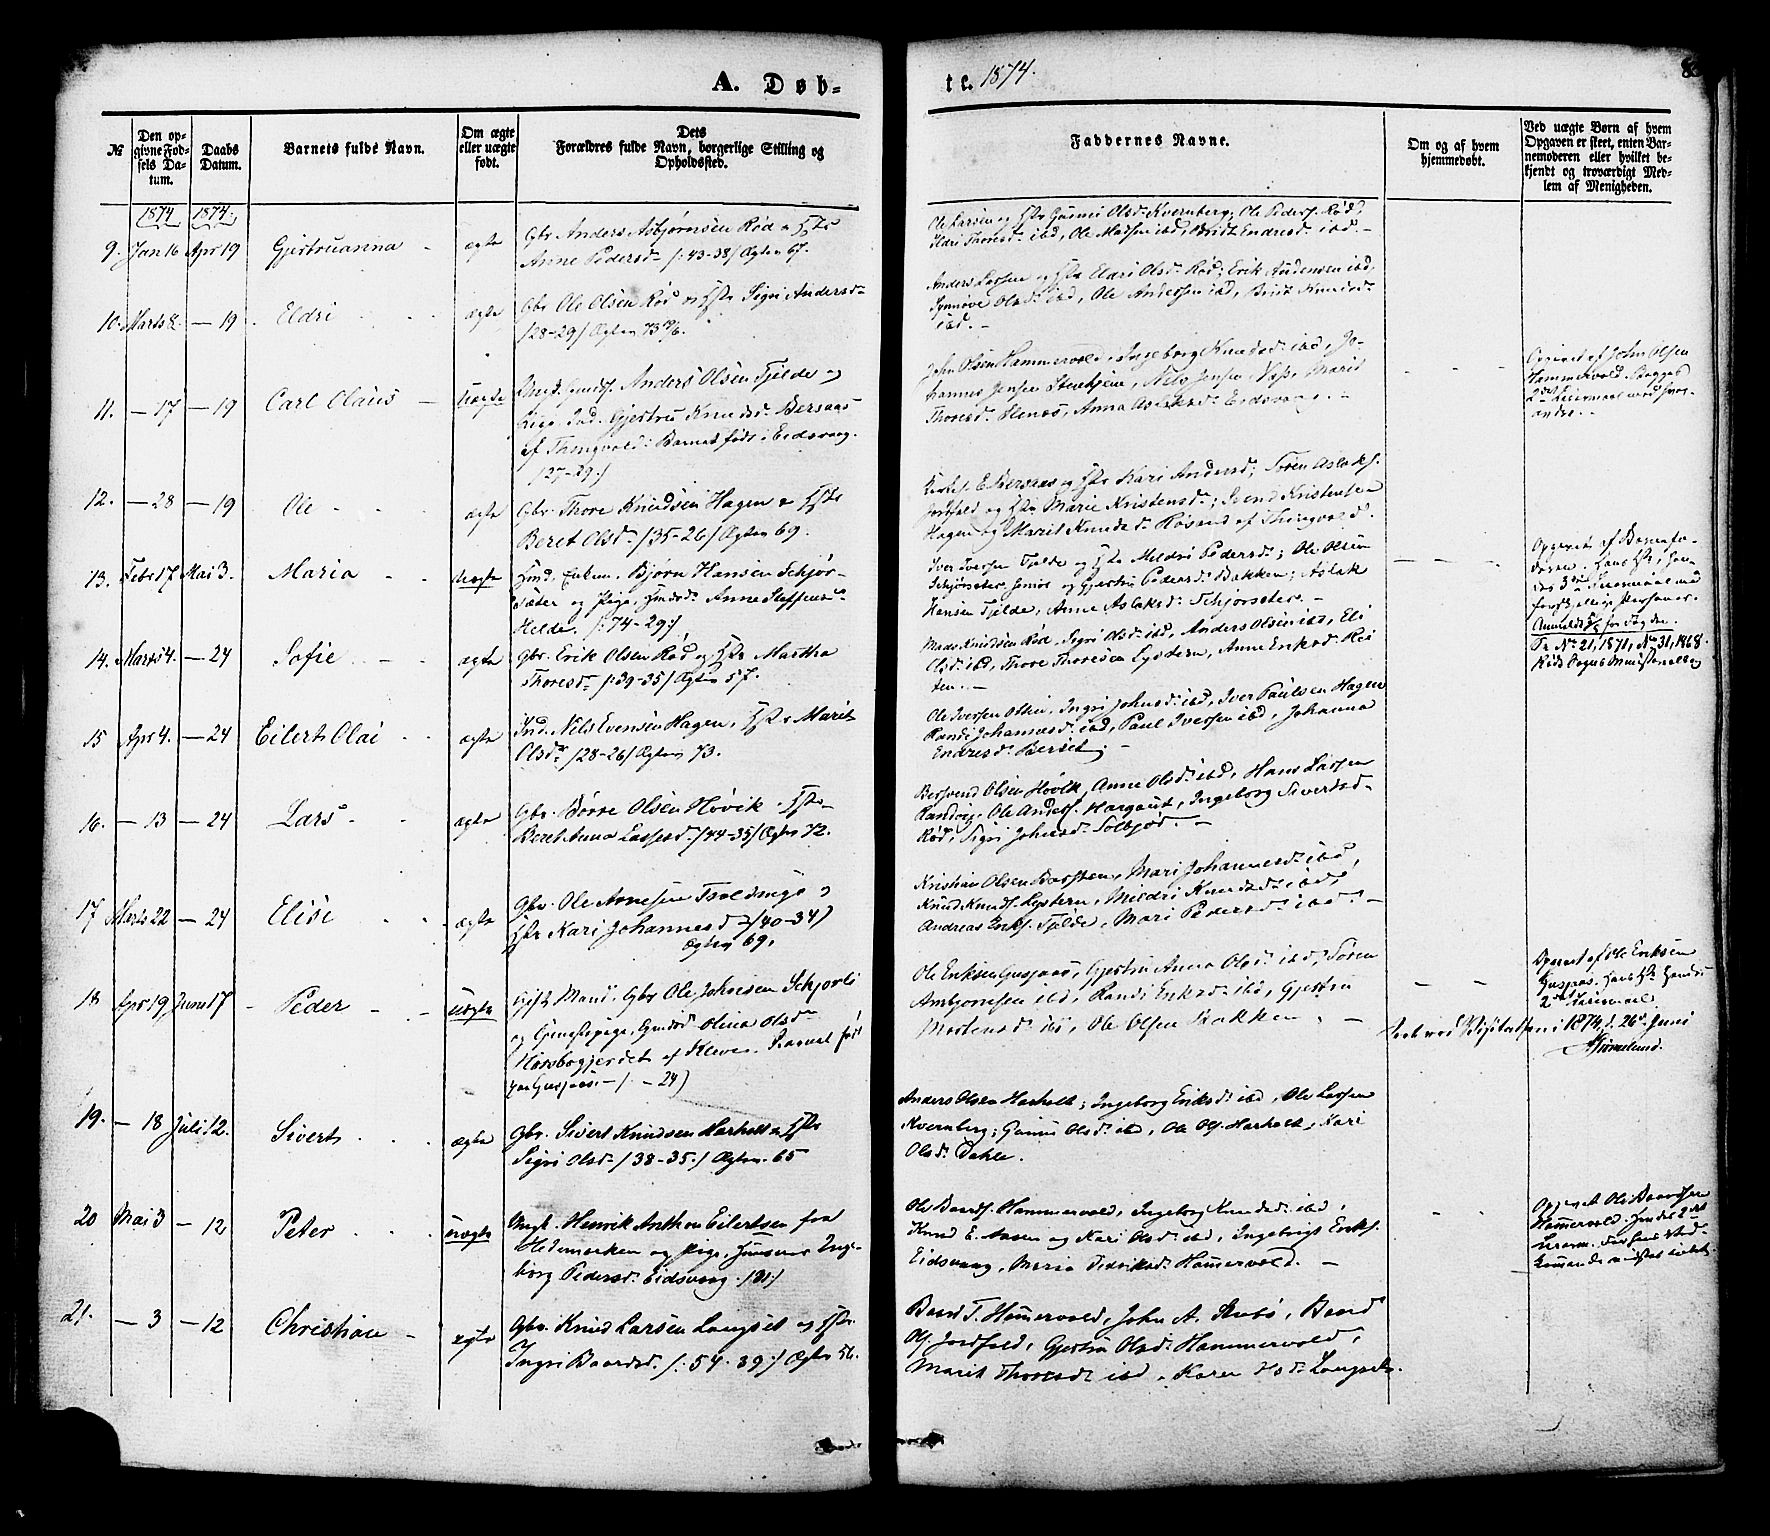 A. Døb-
t l. 1874.
8
№
Den op-
givne Fød-
sels Da-
tum.
Daabs
Datum.
Barnets fulde Navn.
Om ægte
eller uægte
født.
Dets
Forældres fulde Navn, borgerlige Stilling og
Opholdssted.
Faddernes Navne.
Om og af hvem
hjemmedøbt.
Ved uægte Børn af hvem
Opgaven er skeet, enten Bar-
nemoderen eller hvilket be-
kjendt og troværdigt Med-
lem af Menigheden.
1874 1874.
9. Jan 16 Apr 19 Gjertruanna - ægte
Gbr. Anders Asbjørnsen Rød og Hstr
Anne Pedersd. /:43-38/ Ægtev 67.
Ole Larsen og Hstr Gunni Olsd. Kvernberg; Ole Peders. Rød,
Ildri Thoresd. ibd, Ole Madsen ibd, Brit Endresd. ibd. -
10. Marts 8. - 19 Eldri ægte
Gbr. Ole Olsen Rød og Hstr Sigri Andersd.
/28-29/ Ægtev 73
Anders Lassen og Hstr Elari Olsd. Rød; Erik Andersen ibd,
Synnøve Olsd. ibd, Ole Andersen ibd, Brit Knudsd.
ibd. -
11. - 17 - 19 Carl Claus - Uægte
Ungk. Anders Olsen Fjelde og
Pige Ind. Gjertru Knudsd. Bersaas
af Thingvold. Barnet født i Eidsvaag.
/27-29:/
John Olsen Hammervold, Ingeborg Knudsd. ibd, Jo-
hannes Jensen, Nils Jensen, Marit
Thoresd. Henøs, Anna Aslaksd. Eidsvaag. -
Opgivet af John Olsen
Hammervold. Begges
2det Leiermaal med hver-
andre. -
12. - 28 - 19 Ole - ægte
Gbr. Thore Knudsen Hagen & Hstr
Beret Olsd. /35-26/ Ægtev 69.
E. Bersaas og Hstr Kari Andersd; Søren Aslaks.
Jordfald og Hstr Marie Kristensd.; Svend Kristensen
Hagen og Marit Knudsd. Røsand af Thingvold.
13. Febr 17 Mai 3. Maria - - Uægte
Ind. Enkem. Bjørn Hansen Schjør-
sæter og Pige, Indsd. Anne Steffensd.
Helde. /:74-29:/
Iver Iversen Fjelde og Hstr Meldri Pedersd.; Ole Olsen
Schjørsæter junior og Gjertru Pedersd. Bakken; Aslak
Hansen Fjelde, Anne Aslaksd. Schjørsæter. -
Opgivet af Barnefa-
deren. Hans 4de, hen-
des 3die Leiermaal med
forskjellige Personer.
Anmeldt for Fogden.
14. Marts 4. - 24 Sofie - ægte
Gbr. Erik Olsen Rød og Hstr Martha
Thoresd. /:39-35/ Ægtev 57.
Mads Knudsen Rød, Sigri Olsd. ibd, Anders Olsen ibd, Eli
Olsd. ibd, Thore Thoresen Lystern, Anne Eriksd. Rei
ten. -
Fr. No 21, 1871, No 31, 1868.
15 Apr 4. - 24 Eilert Olai ægte
Ind. Nils Evensen Hagen, Hstr Marit
Olsdr /28-26/ Ægtev 73.
Ole Iversen, Ingri Johnsd. ibd, Iver Paulsen Hagen
Randi Johannesd. ibd, Paul Iversen ibd, Johanna
Endresd. Berset; -
16. - 13 - 24 Lars - ægte
Gbr. Børre Olsen Høvik, Hstr
Beret Anna Lassesd. /44-35/ Ægtev 72.
Bersvend Olsen Høvik, Anne Olsd. ibd, Hans Lassen
Randvig, Ole Anders. Hargaut, Ingeborg Sivertsd.
Rød, Sigri Johnsd. Solbjød. -
17 Marts 22 - 24 Elise ægte
Gbr. Ole Arnesen Tjeldnuge og
Hstr Kari Johannesd. /40-34/
Ægtev 69.
Kristian Olsen Børsten, Mari Johannesd. ibd,
Knud Knuds. Lystern, Mildri Knudsd. ibd,
Andreas Eriks. Fjelde, Mari Pedersd. ibd. -
18 Apr 19 Juni 7 - Peder - - Uægte
Gift Mand, Gbr Ole Johnsen Schjorli
og Tjenestepige, Olina Olsd.
Horsbogjerdet af Kleve. Barnet født
paa Gusjaas. - /. - 24)
Ole Eriksen Gusjaas, Gjertru Anna Olsd. ibd, Søren
Ambjornsen ibd, Randi Eriksd. ibd, Gjertru
Mortensd. ibd, Ole Olsen Bakken. -
Opgivet af Ole Eriksen
Gusjaas. Hans 1ste, hendes
2det Leiermaal
Seet ved Visitatsen i 1874, d. 26d Juni
19. - 18 Juli 12. Sivert ægte
Gbr. Sivert Knudsen Harholt & Hstr
Sigri Olsd. /38-35./ Ægtev. 65
Anders Olsen Harholt; Ingeborg Eriksd. ibd, Ole Lassen
Kvernberg; Gunni Olsd. ibd, Ole Ols. Harholt, Kari
Olsd. Dahle.
20 Mai 3 - 12 Peter Uægte
Ungk. Henrik Anthon Eilertsen fra
Hedemarken og Pige, Inge-
borg Pedersd. Eidsvaag. /21/
Ole Baards. Hammervold, Ingeborg Knudsd. ibd,
Knud E. Aasen og Kari Olsd. ibd, Ingebrigt Eriks.
Eidsvaag, Maria Didriksd. Hammervold. -
Opgivet Ole Baardsen
Hammervold. Hendes 2det
Leierm.
21. - 3 - 12 Christian - ægte
Gbr. Knud Larsen Langset og Hstr
Ingri Baardsd. /:54-39:/ Ægtev 56.
Baard T. Hammervold, John A. Stubø, Baard
Ols. Jordfald, Gjertru Olsd. Hammervold,
Marit Thoresd. ibd, Karen Olsd. Langset.